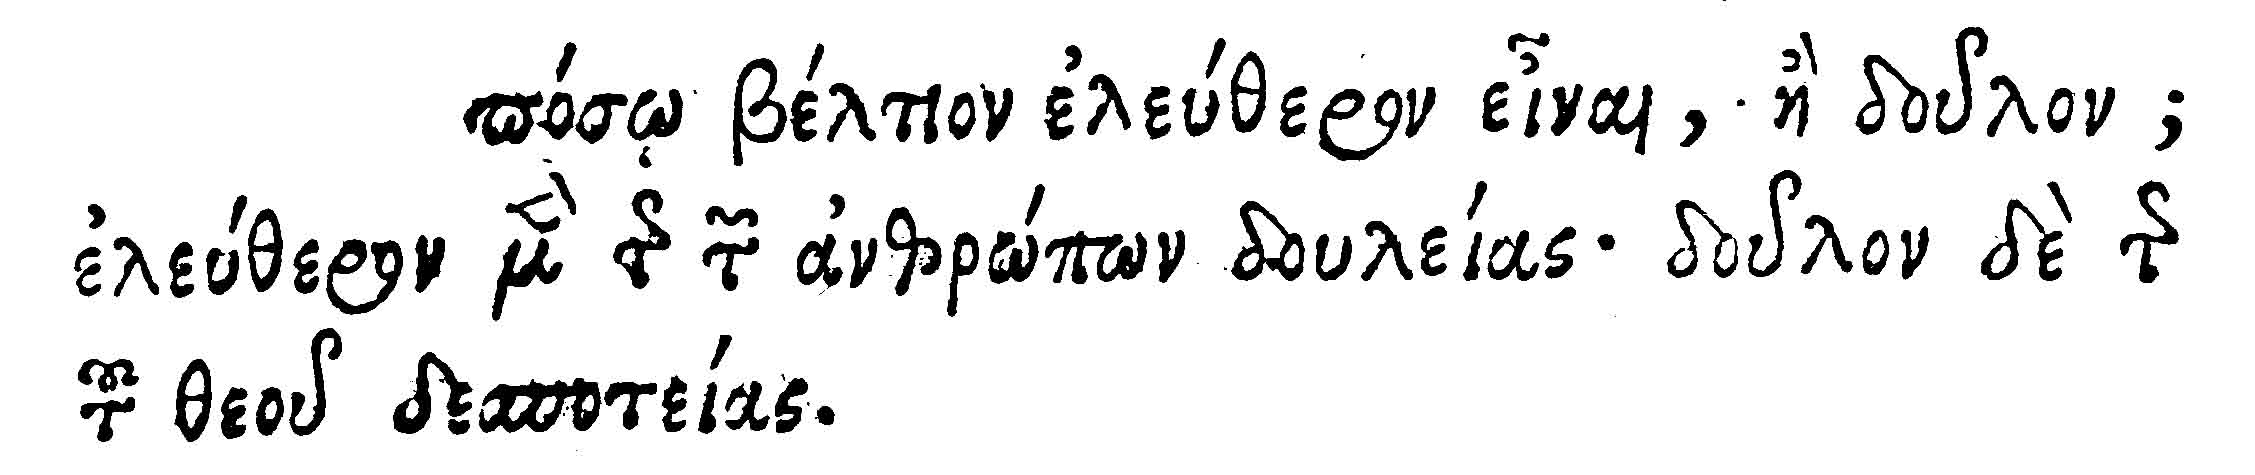 πόσῳ βέλτιον ἐλεύθερον εἶναι, ἢ δοῦλον;
ἐλεύθερον μὲν τῆς τῶν ἀνθρώπων δουλείας· δοῦλον δὲ τῆς
τοῦ θεοῦ δεσποτείας.